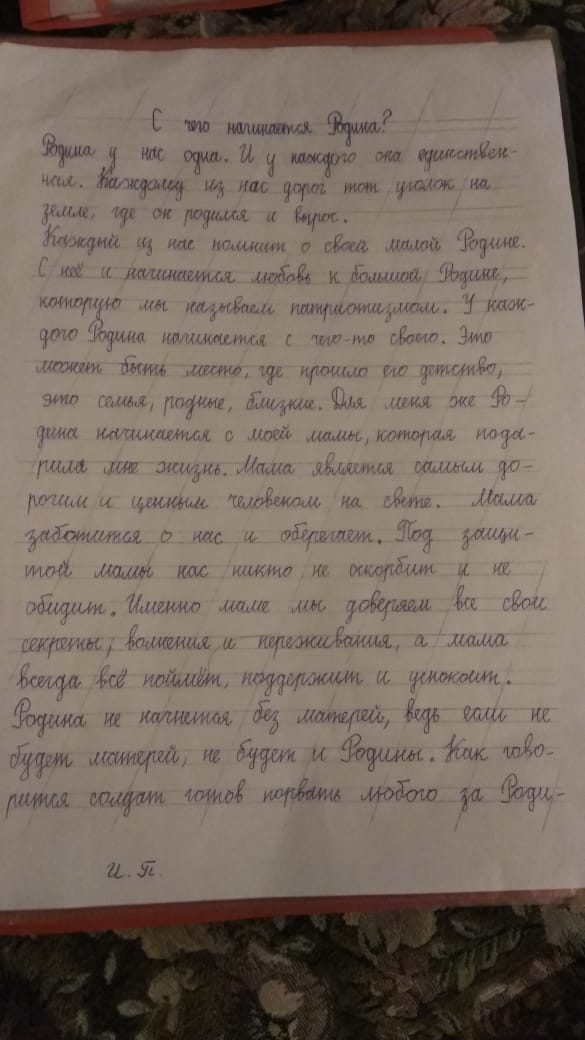 С чего начинается Родина?
Родина у нас одна. И у каждого она единствен-
ная. Каждому из нас дорог тот уголок на
земле, где он родился и вырос.
Каждый из нас помнит о своей малой Родине.
С неё и начинается любовь к большой Родине,
которую мы называем патриотизмом. У каж-
дого Родина начинается с чего-то своего. Это
может быть место, где прошло его детство,
это семья, родные, близкие. Для меня же Ро-
дина начинается с моей мамы, которая пода-
рила мне жизнь. Мама является самым до-
рогим и ценным человеком на свете. Мама
заботится о нас и оберегает. Под защи-
той мамы нас никто не оскорбит и не
обидит. Именно маме мы доверяем все свои
секреты, волнения и переживания, а мама
всегда всё поймёт, поддержит и успокоит.
Родина не начнется без матерей, ведь если не
будет матерей, не будет и Родины. Как гово-
рится солдат готов порвать любого за Роди-
И. П.